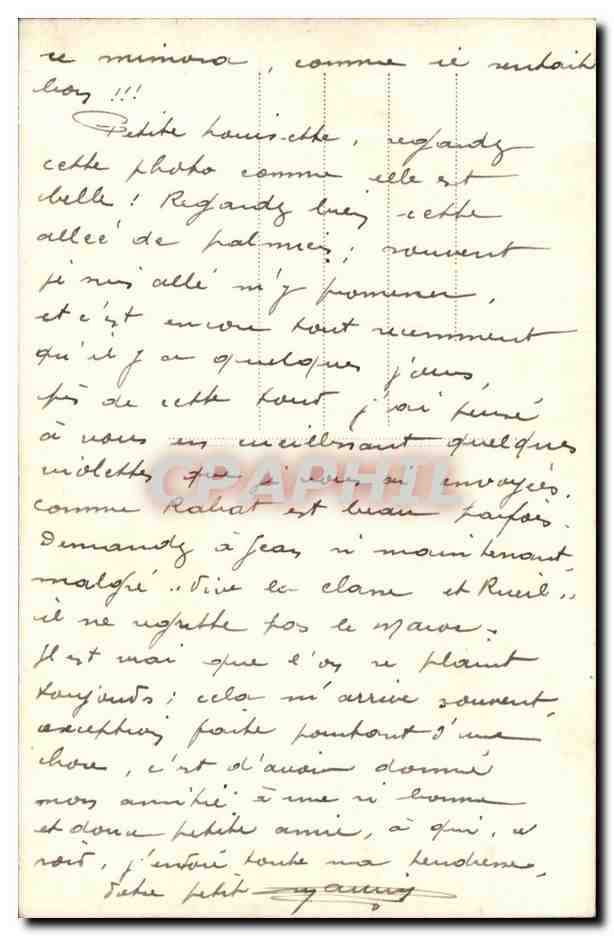 ce mimosa, comme il sentait
bon !!!
Petite Louisette, regardez
cette photo comme elle est
belle ! Regardez bien cette
allée de palmiers ; souvent
je suis allé m'y promener,
et c'est encore tout recemment
qu'il y a quelques jours,
près de cette tour j'ai pensé
à vous en cueillissant quelques
violettes que je vous ai envoyées.
CPAPHIL
comme Rabat est beau parfois.
Demandez à Jean si maintenant,
malgré "Vive la classe et Rueil"
il ne regrette pas le Maroc.
Il est vrai que l'on se plaint
toujours ; cela m'arrive souvent,
exception faite pourtant d'une
chose, c'est d'avoir donné
mon amitié à une si bonne
et douce petite amie, à qui, ce
soir, j'envoie toute ma tendresse.
Votre petit